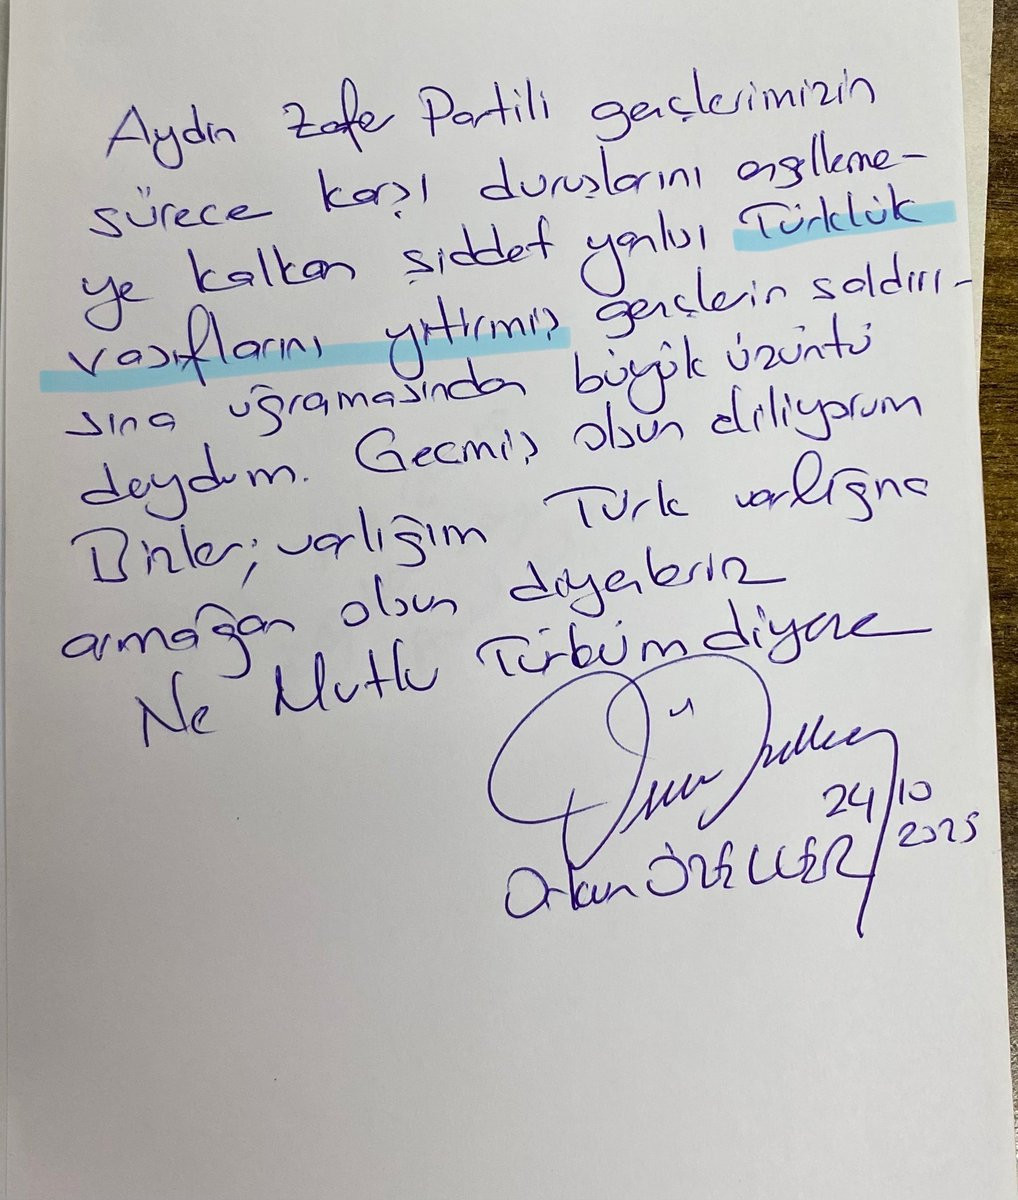 Aydın Zafer Partili gençlerimizin
sürece karşı duruşlarını engelleme-
ye kalkan şiddet yanlısı Türklük
vasıflarını yitirmiş gençlerin saldırı-
sına uğramasından büyük üzüntü
deydum. Geçmiş olsun diliyorum
Bizler; varlığım Türk varlığna
armağan olsun diyenleriz
Ne Mutlu Türküm diyene
24/10
2025
Orkun ÖZELLER